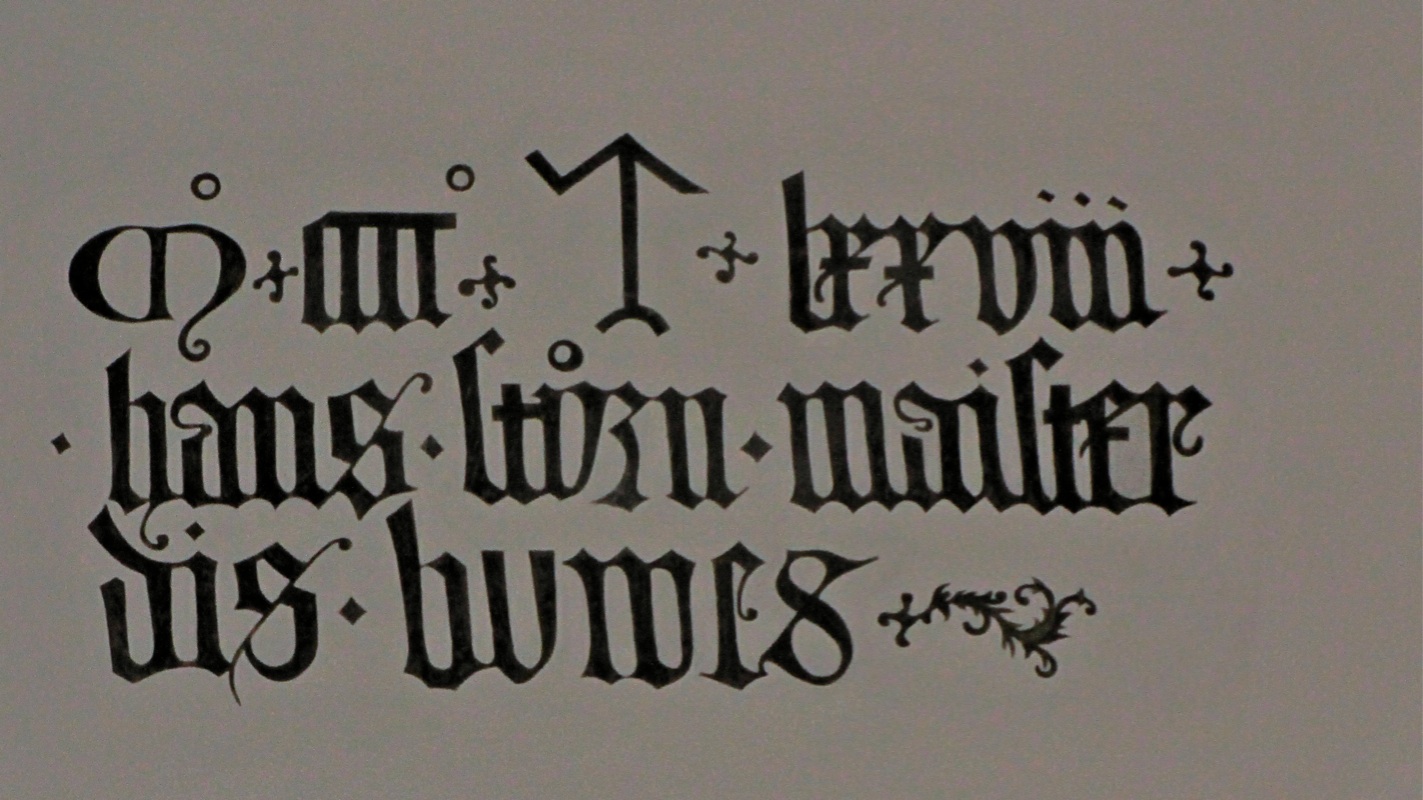 m° cccc° lxxviii
· hans · ſtůꝛn · maiſter
dis · buwes